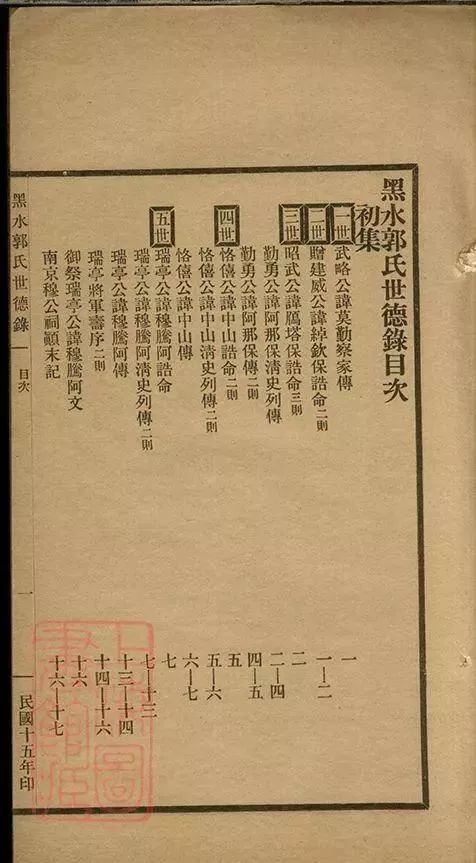 黑水郭氏世德錄目次
初集
一世 武略公諱莫勤察家傳 一
二世 贈建威公諱綽欽保誥命二則 一—二
三世 昭武公諱鴈塔保誥命三則 二
勤勇公諱阿那保清史列傳 二—四
勤勇公諱阿那保傳二則 四—五
四世 恪僖公諱中山誥命二則 五
恪僖公諱中山清史列傳二則 五—六
恪僖公諱中山傳 六—七
五世 瑞亭公諱穆騰阿誥命 七
瑞亭公諱穆騰阿清史列傳二則 七—十三
瑞亭公諱穆騰阿傳 十三—十四
瑞亭將軍壽序二則 十四—十六
御祭瑞亭公諱穆騰阿文 十六
南京穆公祠顛末記 十六—十七
黑水郭氏世德錄 目次 一 民國十五年印